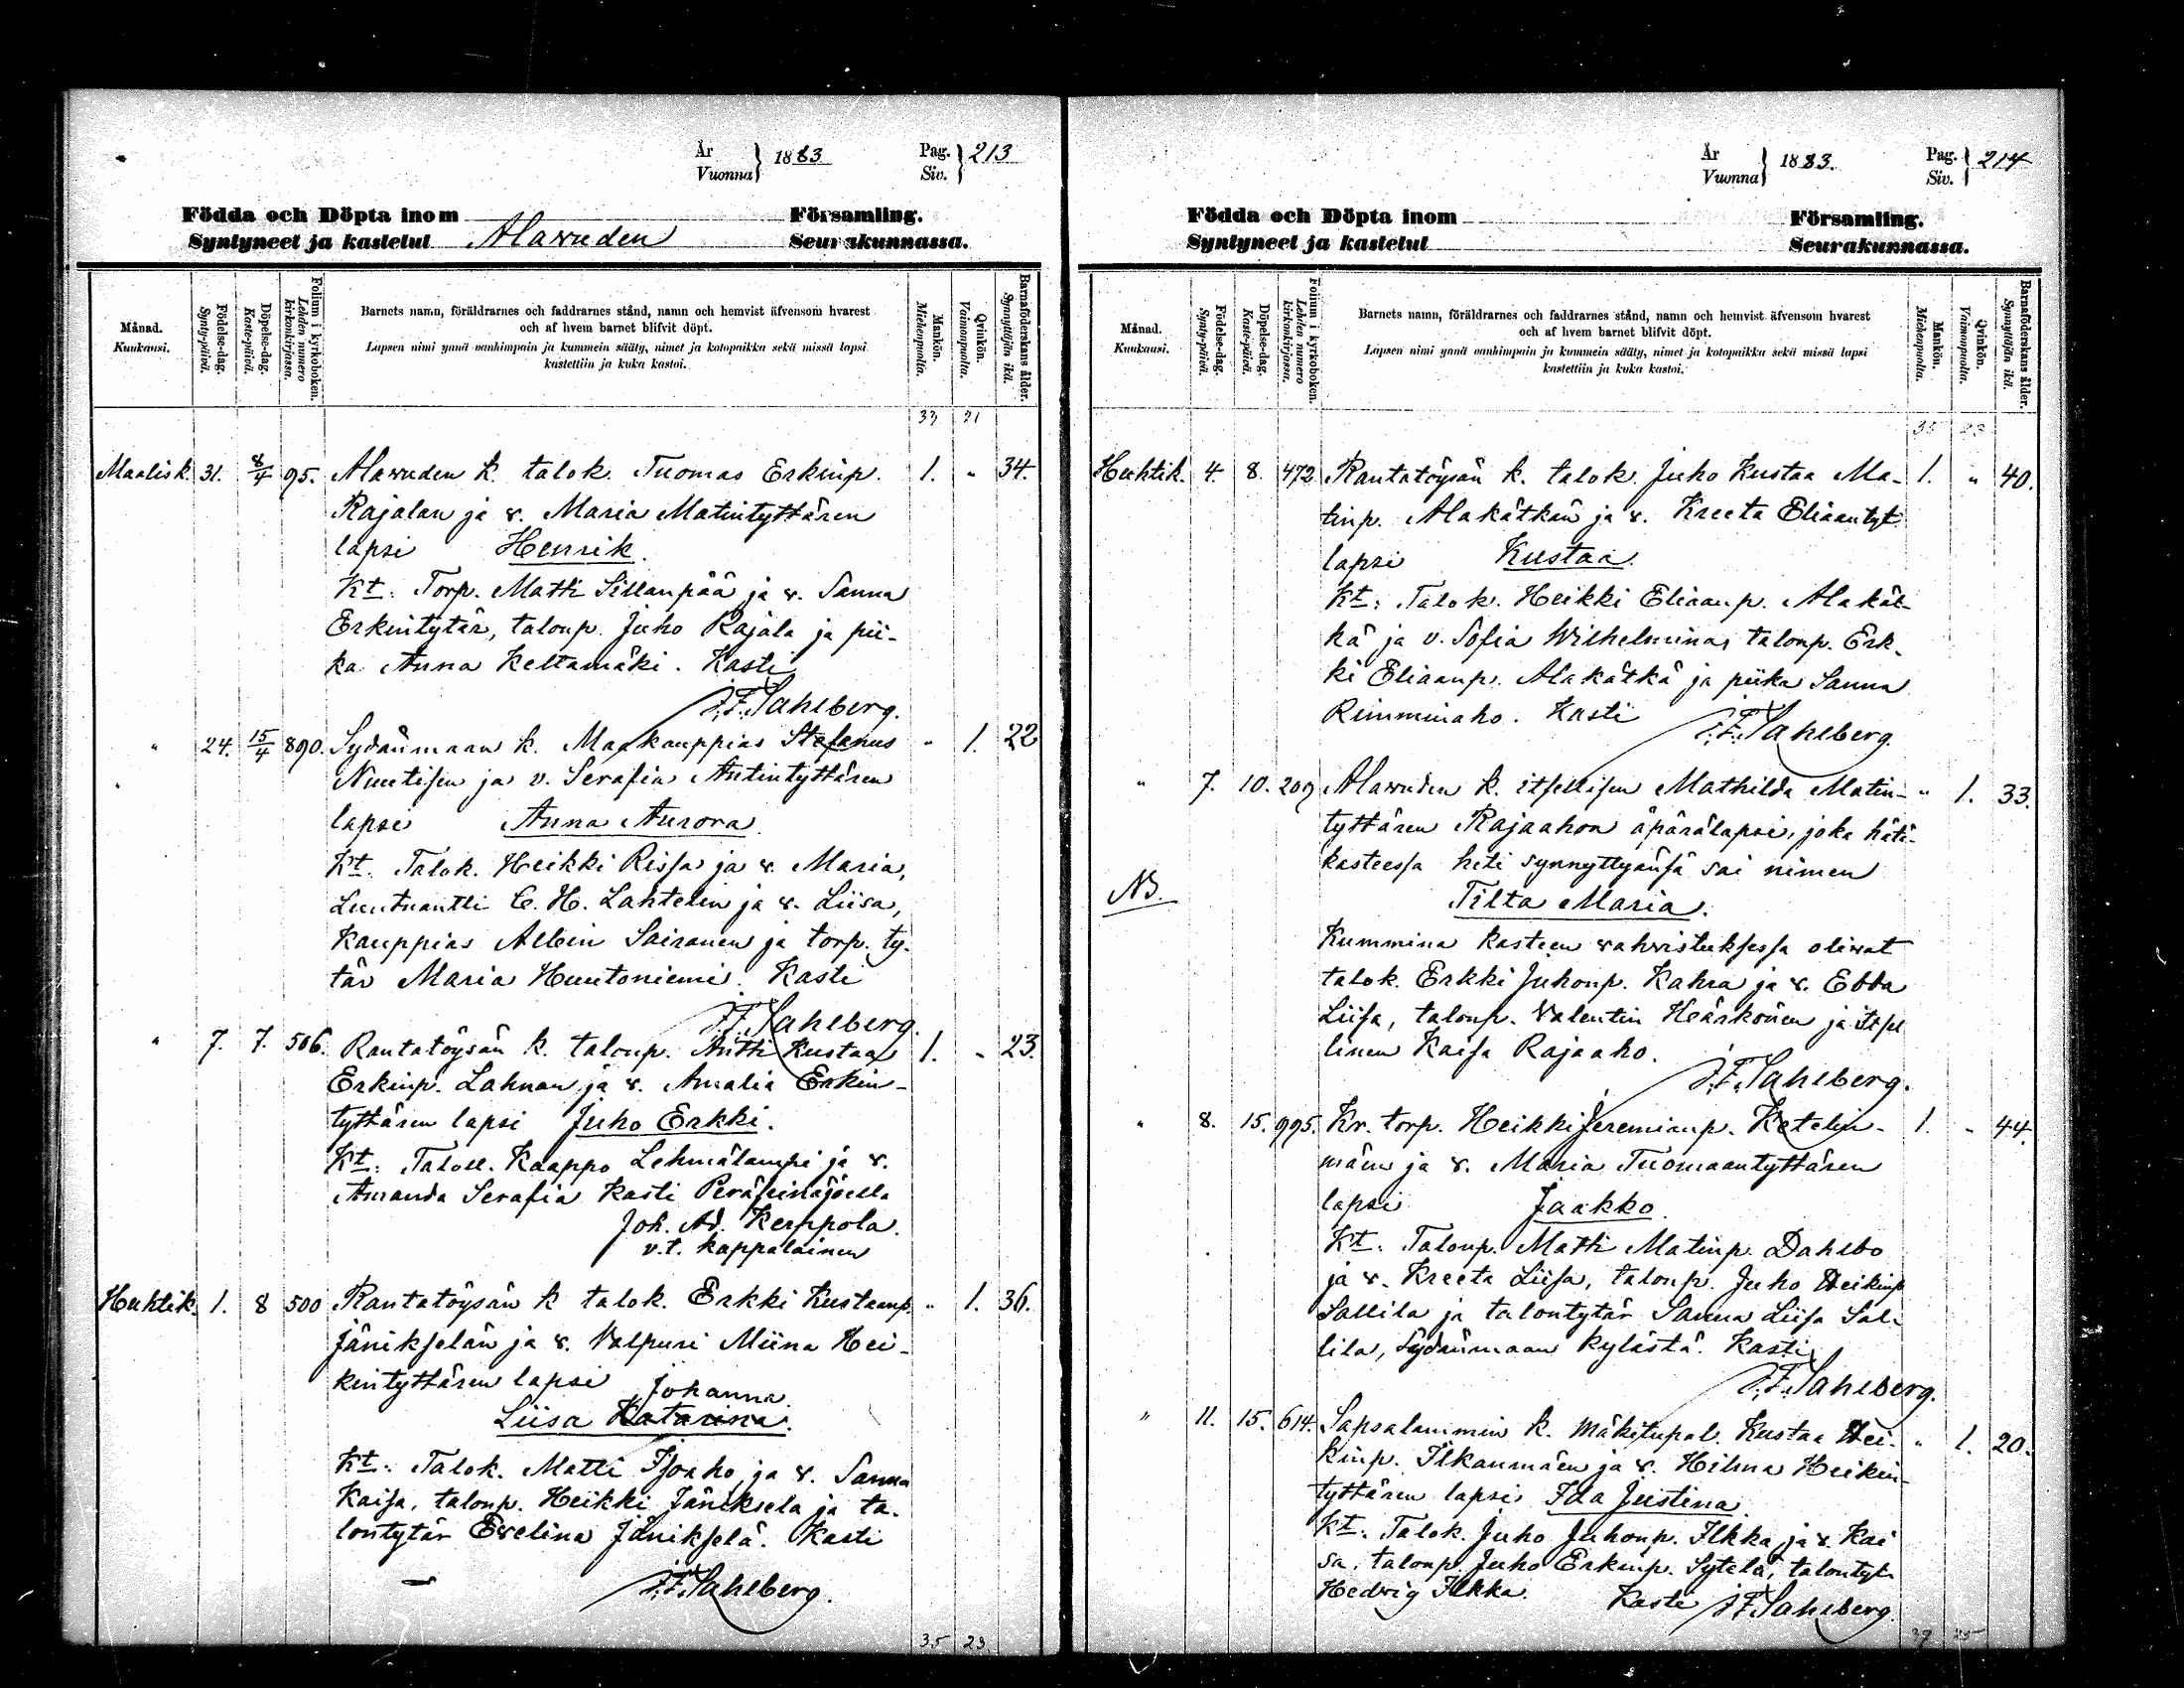 År Vuonna } 1883 Pag. Siv. } 213
Födda och Döpta inom Församling.
Syntyneet ja kastetut Alavuden Seurakunnassa.
Månad. Kuukausi.
Födelse-dag. Synty-päivä.
Döpelse-dag. Kaste-päivä.
Folium i kyrkoboken. Lehden numero kirkonkirjassa.
Barnets namn, föräldrarnes och faddrarnes stånd, namn och hemvist äfvensom hvarest
och af hvem barnet blifvit döpt.
Lapsen nimi ynnä vanhimpain ja kummein sääty, nimet ja kotopaikka sekä missä lapsi
kastettiin ja kuka kastoi.
Mankön. Miehenpuolta.
Qvinkön. Vaimonpuolta.
Barnaföderskans ålder. Synnyttäjän ikä.
33 21
Maalisk. 31. 8/4 95. Alavuden k. talok. Tuomas Erkinp. 1. " 34.
Rajalan ja v. Maria Matintyttären
lapsi Henrik.
Kt: Torp. Matti Sillanpää ja v. Sanna
Erkintytär, talonp. Juho Rajala ja pii-
ka Anna Keltamäki. Kasti
J.F. Sahlberg.
" 24. 15/4 890. Sydänmaan k. Maakauppias Stefanus " 1. 22
Nuutisen ja v. Serafia Antintyttären
lapsi Anna Aurora
Kt. Talok. Heikki Rissa ja v. Maria,
Luutnantti C. H. Lahtelin ja v. Liisa,
Kauppias Albin Sairanen ja torp. ty-
tär Maria Huutoniemi. Kasti
J.F. Sahlberg.
" 7. 7. 506. Rantatöysän k. talonp. Antti Kustaa 1. " 23.
Erkinp. Lahnan ja v. Amalia Erkin-
tyttären lapsi Juho Erkki.
Kt: Taloll. Kaappo Lehmälampi ja v.
Amanda Serafia Kasti Peräseinäjoella
Joh. Ad. Kerppola.
v.t. kappalainen
Huhtik. 1. 8 500 Rantatöysän k talok. Erkki Kustaanp. " 1. 36.
Jänikselän ja v. Valpuri Miina Hei-
kintyttären lapsi Johanna
Liisa Katarina.
Kt: Talok. Matti Isoaho ja v. Sanna
Kaisa, talonp. Heikki Jäniksela ja ta-
lontytär Evelina Jänikselä. Kasti
J.F. Sahlberg.
35 23
År Vuonna } 1883. Pag. Siv. } 214
Födda och Döpta inom Församling.
Syntyneet ja kastetut Seurakunnassa.
Månad. Kuukausi.
Födelse-dag. Synty-päivä.
Döpelse-dag. Kaste-päivä.
Folium i kyrkoboken. Lehden numero kirkonkirjassa.
Barnets namn, föräldrarnes och faddrarnes stånd, namn och hemvist äfvensom hvarest
och af hvem barnet blifvit döpt.
Lapsen nimi ynnä vanhimpain ja kummein sääty, nimet ja kotopaikka sekä missä lapsi
kastettiin ja kuka kastoi.
Mankön. Miehenpuolta.
Qvinkön. Vaimonpuolta.
Barnaföderskans ålder. Synnyttäjän ikä.
35 23
Huhtik. 4. 8. 472 Rantatöysän k. talok. Juho Kustaa Ma- 1. " 40.
tinp. Alakätkän ja v. Kreeta Eliaantyt
lapsi Kustaa.
Kt: Talok. Heikki Eliaanp. Alakät-
kä ja v. Sofia Wilhelmina, talonp. Erk-
ki Eliaanp. Alakätkä ja piika Sanna
Rimminaho. Kasti
J.F. Sahlberg.
" 7. 10. 209 Alavuden k. itsellisen Mathilda Matin- " 1. 33.
tyttären Rajaahon äpärälapsi, joka hätä-
kasteessa heti synnyttyänsä sai nimen
NB.
Tilta Maria.
Kummina kasteen vahvistuksessa olivat
talok. Erkki Juhonp. Kahra ja v. Ebba
Liisa, talonp. Valentin Heärkönen ja itsel
linen Kaisa Rajaaho.
J.F. Sahlberg.
" 8. 15. 995. Kr. torp. Heikki Jeremianp. Ketelin- 1. " 44.
mäen ja v. Maria Tuomaantyttären
lapsi Jaakko.
Kt: Talonp. Matti Matinp. Dahlbo
ja v. Kreeta Liisa, talonp. Juho Heikinp
Sallila ja talontytär Sanna Liisa Sal-
lila, Sydänmaan kylästä. Kasti
J.F. Sahlberg.
" 11. 15. 614. Sapsalammin k. Mäkitupal. Kustaa Hei- " 1. 20.
kinp. Ilkanmäen ja v. Hilma Heikin-
tyttären lapsi Ida Justina
Kt: Talok. Juho Juhonp. Ilkka ja v. Kai
sa, talonp. Juho Erkinp. Sytelä, talontyt.
Hedvig Ilkka. Kasti J.F. Sahlberg.
37 25